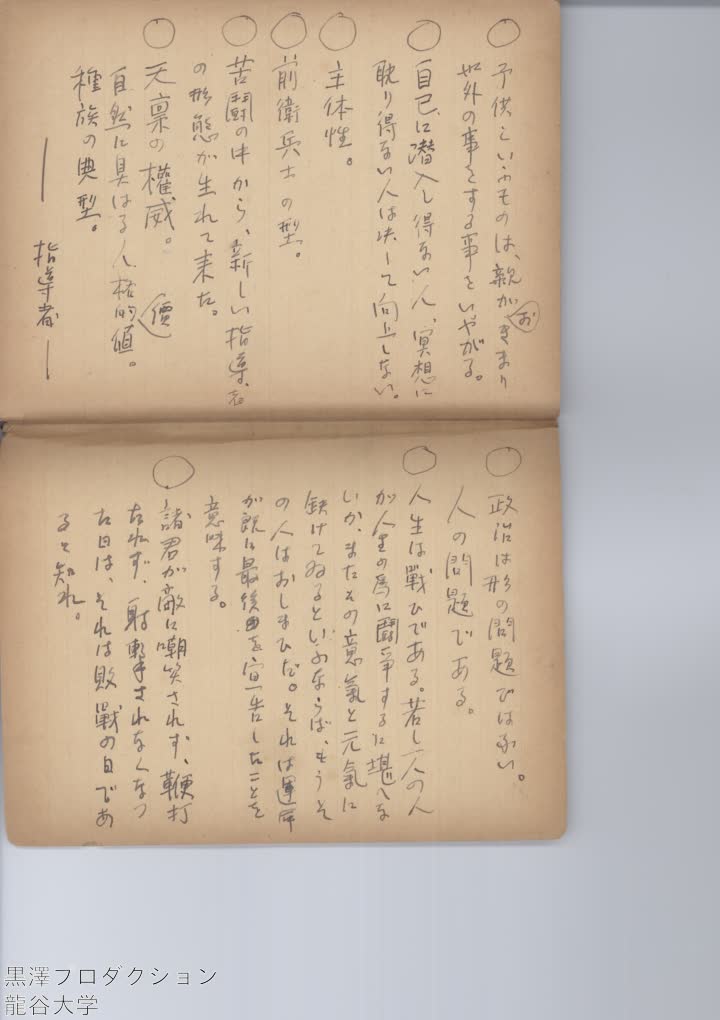 ○子供といふものは、親がきまり
お
以外の事をする事をいやがる。
○自己に潜入し得ない人、冥想に
耽り得ない人は決して向上しない。
○主体性。
○前衛兵士の型。
○苦闘の中から、新しい指導者
の形態が生れて来た。
○天禀の權威。
自然に具はる人格的値。
價
種族の典型。
── 指導者 ──
○政治は形の問題ではない。
人の問題である。
○人生は戰ひである。若し一人の人
が人生の為に鬪爭するに堪へな
いか、またその意氣と元氣に
缺けてゐるといふならば、もうそ
の人はおしまひだ。それは運命
が既に最後を宣告したことを
意味する。
○諸君が敵に嘲笑されず、鞭打
たれず、射撃されなくなつ
た日は、それは敗戰の日であ
ると知れ。
黒澤プロダクション
龍谷大学